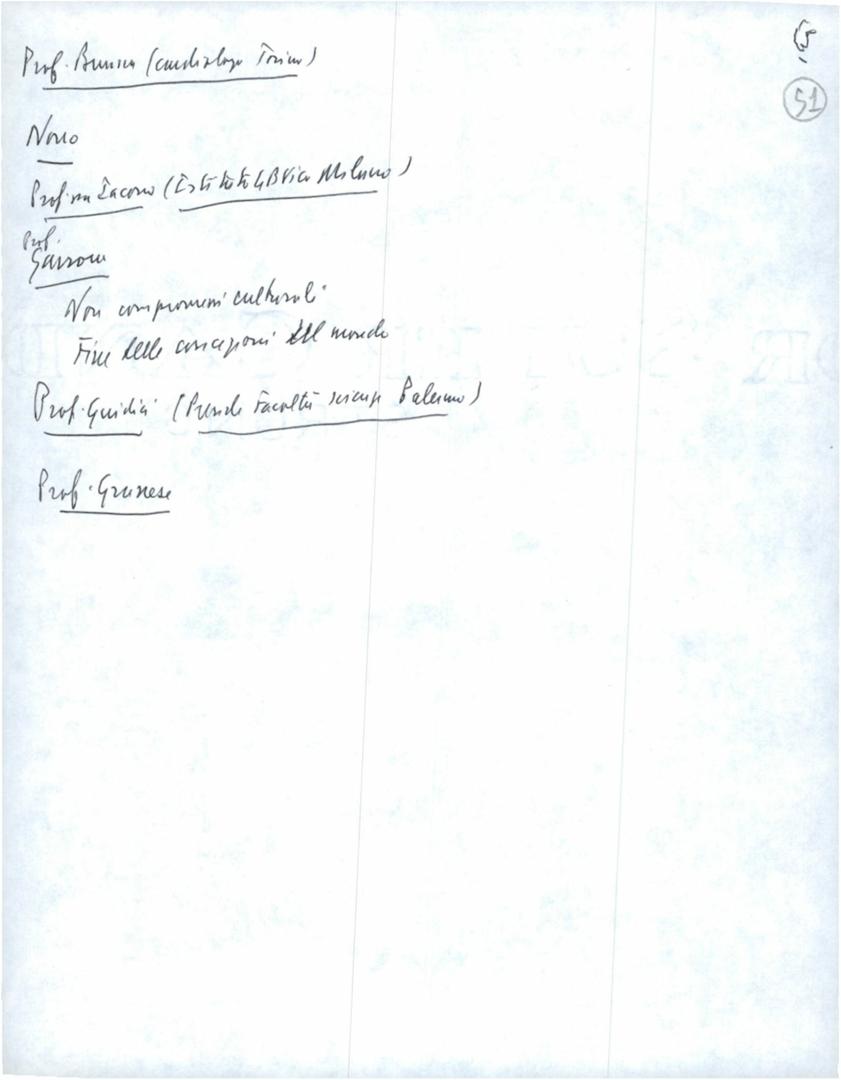 51
Prof. Brusca (cardiologo Torino)
Nono
Prof.ssa Iacono (Istituto GB Vico Milano)
Prof.
Garroni
Non compromessi culturali
Fine delle concezioni del mondo
Prof. (Preside Facoltà scienze Palermo)
Prof.